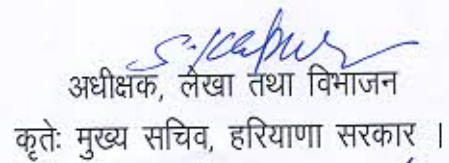 S. Kapur
अधीक्षक, लेखा तथा विभाजन
कृतेः मुख्य सचिव, हरियाणा सरकार ।